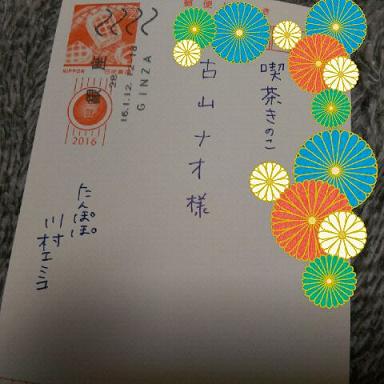 郵便
喫茶きのこ
古山ナオ様
たんぽぽ
川村エミコ
NIPPON
銀座
16.1.12
GINZA
2016